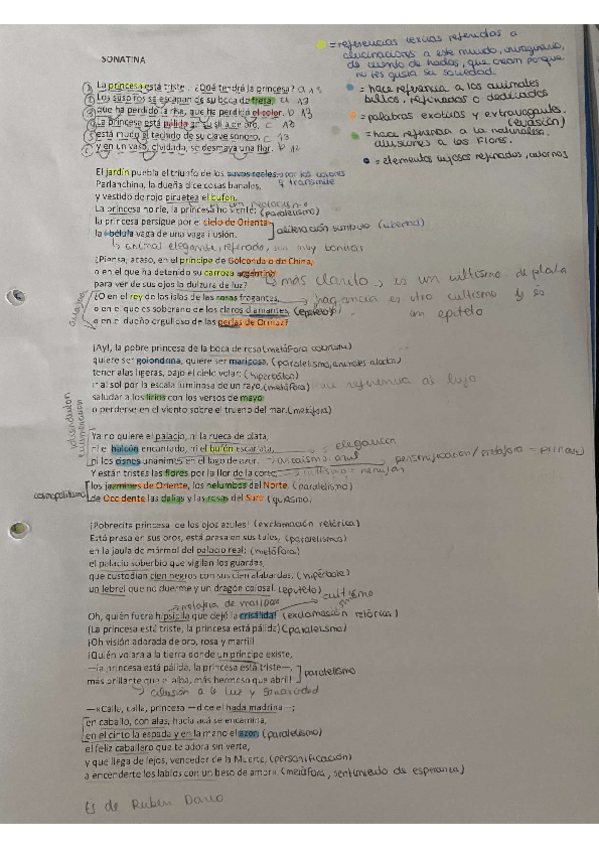 SONATINA
= referencias léxicas referidas a
alucinaciones a este mundo, imaginario,
de cuento de hadas, que crean porque
no les gusta su sociedad.
= hace referencia a los animales
bellos, refinados o delicados
= palabras exóticas y extravagantes.
(evasión)
= hace referencia a la naturaleza,
alusiones a las flores.
= elementos lujosos refinados, adornos
La princesa está triste... ¿Qué tendrá la princesa? a 13
Los suspiros se escapan de su boca de fresa, a 13
que ha perdido la risa, que ha perdido el color. b 13
La princesa está pálida en su silla de oro, c 13
está mudo el teclado de su clave sonoro, c 13
y en un vaso, olvidada, se desmaya una flor. b
El jardín puebla el triunfo de los pavos reales. por los colores
q transmite
Parlanchina, la dueña dice cosas banales,
y vestido de rojo piruetea el bufón.
La princesa no ríe, la princesa no siente; (paralelismo)
la princesa persigue por el cielo de Oriente
la libélula vaga de una vaga ilusión.
aliteración
animal elegante, refinado, muy bonitas
¿Piensa, acaso, en el príncipe de Golconda o de China,
o en el que ha detenido su carroza argentina
para ver de sus ojos la dulzura de luz?
más clarito, es un cultismo. de plata
¿O en el rey de las islas de las rosas fragantes,
fragancia es otro cultismo y es
un epíteto
o en el que es soberano de los claros diamantes, (epíteto)
o en el dueño orgulloso de las perlas de Ormuz?
¡Ay!, la pobre princesa de la boca de rosa (metáfora)
quiere ser golondrina, quiere ser mariposa, (paralelismo, animales alados)
tener alas ligeras, bajo el cielo volar; (hipérbole)
ir al sol por la escala luminosa de un rayo, (metáfora)
referencia al lujo
saludar a los lirios con los versos de mayo
o perderse en el viento sobre el trueno del mar. (metáfora)
Ya no quiere el palacio, ni la rueca de plata,
ni el halcón encantado, ni el bufón escarlata,
elegancia
ni los cisnes unánimes en el lago de azur.
arcaísmo, azul
personificación/metáfora
Y están tristes las flores por la flor de la corte,
cosmopolitismo
los jazmines de Oriente, los nelumbos del Norte, (paralelismo)
de Occidente las dalias y las rosas del Sur.
¡Pobrecita princesa de los ojos azules! (exclamación retórica)
Está presa en sus oros, está presa en sus tules, (paralelismos)
en la jaula de mármol del palacio real; (metáfora)
el palacio soberbio que vigilan los guardas,
que custodian cien negros con sus cien alabardas, (hipérbole)
un lebrel que no duerme y un dragón colosal. (epíteto)
cultismo
Oh, quién fuera hipsipila que dejó la crisálida! (exclamación retórica)
(La princesa está triste, la princesa está pálida) (paralelismo)
¡Oh visión adorada de oro, rosa y marfil!
¡Quién volara a la tierra donde un príncipe existe,
—la princesa está pálida, la princesa está triste—,
más brillante que el alba, más hermoso que abril!
paralelismo
alusión a la luz y
—«Calla, calla, princesa —dice el hada madrina—;
en caballo, con alas, hacia acá se encamina,
en el cinto la espada y en la mano el azor, (paralelismo)
el feliz caballero que te adora sin verte,
y que llega de lejos, vencedor de la Muerte, (personificación)
a encenderte los labios con un beso de amor». (metáfora, sentimiento de esperanza)
Es de Rubén Darío